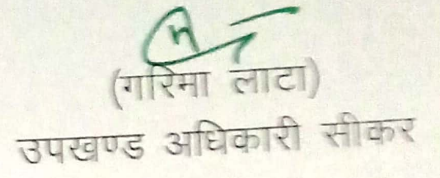 (गरिमा लाटा)
उपखण्ड अधिकारी सीकर